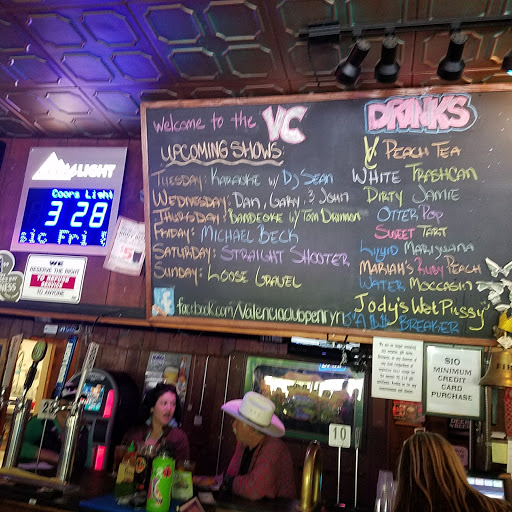 Welcome to the VC
UPCOMING SHOWS
TUESDAY: KARAOKE w/ DJ SEAN
WEDNESDAY: DAN, GARY & JOHN
THURSDAY: BANDEOKE w/ TOM DRINNON
FRIDAY: MICHAEL BECK
SATURDAY: STRAIGHT SHOOTER
SUNDAY: LOOSE GRAVEL
facebook.com/Valenciaclubpenryn
DRINKS
PEACH TEA
WHITE TRASHCAN
DIRTY JAMIE
OTTER POP
SWEET TART
LIQUID MARIJUANA
MARIAH'S RUBY PEACH
WATER MOCCASIN
Jody's Wet Pussy
BREAKER
LIGHT
Coors Light
3 28
sic Fri
WE
RESERVE THE RIGHT
TO REFUSE
SERVICE
TO ANYONE
$10
MINIMUM
CREDIT
CARD
PURCHASE
10